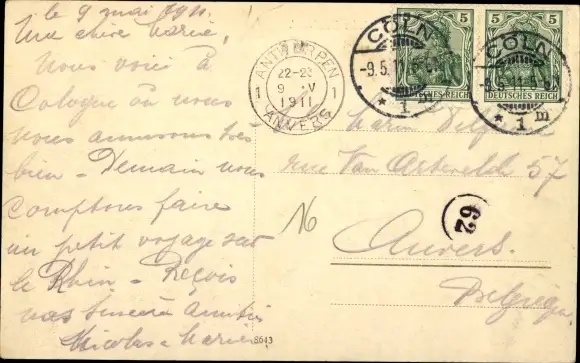 le 9 mai 1911.
Ma chère Marie,
Nous voici à
Cologne où nous
nous amusons très
bien - Demain nous
comptons faire
un petit voyage sur
le Rhin - Reçois
nos
Nicolas & Marie
8643
ANTWERPEN
1 22-23 1
9 V
1911
ANVERS
CÖLN
-9.5.11
* 1 m
5 5
DEUTSCHES REICH
CÖLN
9.5.11
* 1 m
5 5
DEUTSCHES REICH
Maria
rue Van Artevelde 57
N
62
Anvers.
Belgique